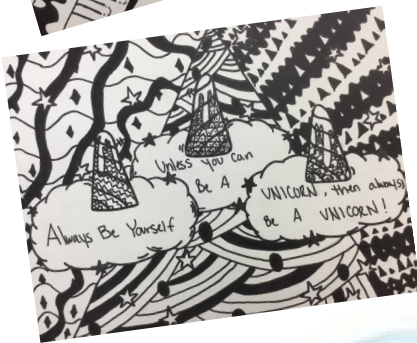 Always Be Yourself
Unless you can
Be A
UNICORN, then always
BE A UNICORN!